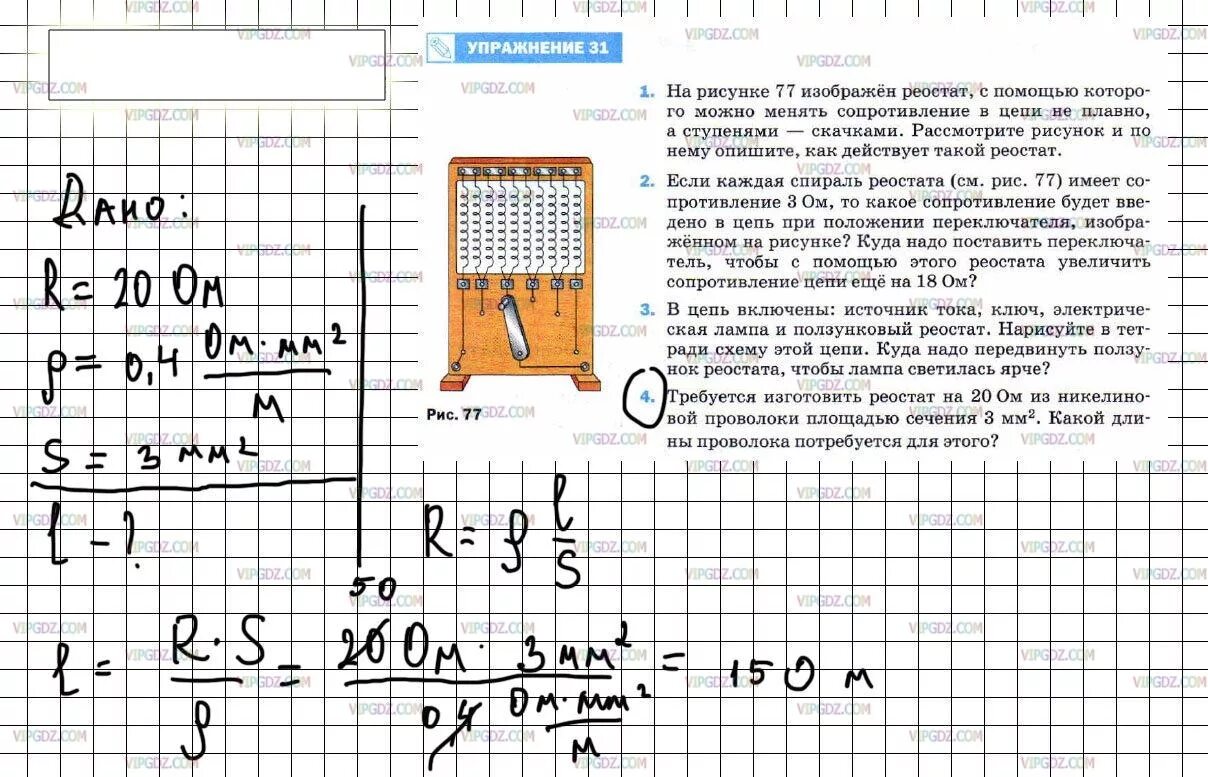 УПРАЖНЕНИЕ 31
1. На рисунке 77 изображён реостат, с помощью которо-
го можно менять сопротивление в цепи не плавно,
а ступенями — скачками. Рассмотрите рисунок и по
нему опишите, как действует такой реостат.
2. Если каждая спираль реостата (см. рис. 77) имеет со-
противление 3 Ом, то какое сопротивление будет вве-
дено в цепь при положении переключателя, изобра-
жённом на рисунке? Куда надо поставить переключа-
тель, чтобы с помощью этого реостата увеличить
сопротивление цепи ещё на 18 Ом?
3. В цепь включены: источник тока, ключ, электриче-
ская лампа и ползунковый реостат. Нарисуйте в тет-
ради схему этой цепи. Куда надо передвинуть ползу-
нок реостата, чтобы лампа светилась ярче?
4. Требуется изготовить реостат на 20 Ом из никелино-
вой проволоки площадью сечения 3 мм². Какой дли-
ны проволока потребуется для этого?
Рис. 77
Дано:
R = 20 Ом
ρ = 0,4 Ом·мм²/м
S = 3 мм²
l - ?
R = ρ l/S
50
l = R·S/ρ = 20 Ом · 3 мм² / 0,4 Ом·мм²/м = 150 м
VIPGDZ.COM